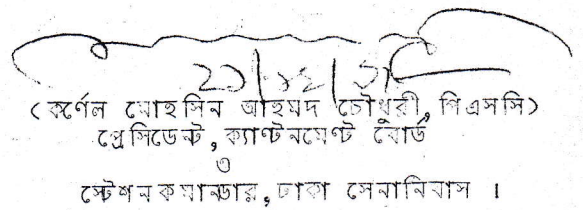 (কর্ণেল মোহসিন আহমদ চৌধুরী, পিএসসি)
প্রেসিডেন্ট, ক্যান্টনমেন্ট বোর্ড
ও
স্টেশন কমান্ডার, ঢাকা সেনানিবাস ।